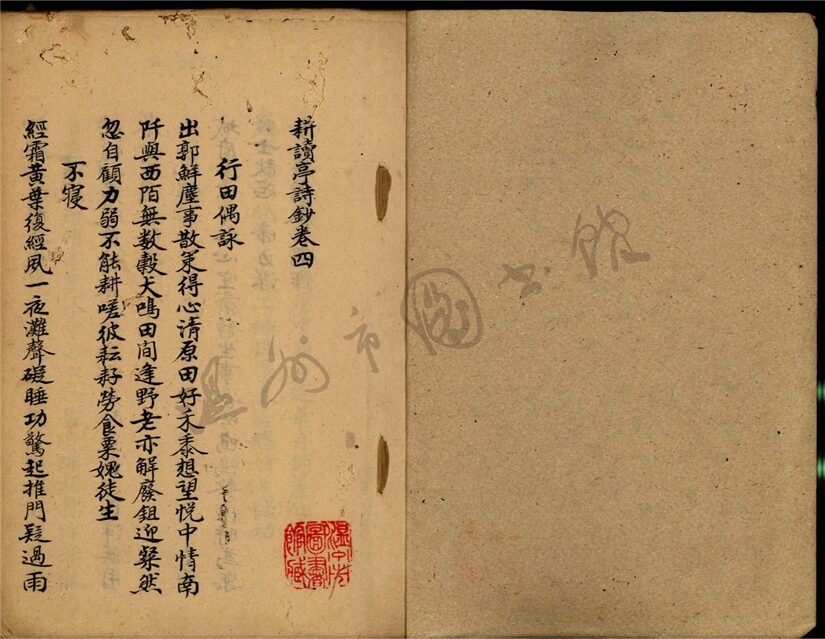 耕讀亭詩鈔卷四
行田偶詠
出郭鮮塵事散策得心清原田好禾黍想望悅中情南
阡與西陌無数穀犬鳴田間逢野老亦解廢鉏迎粲然
忽自顧力弱不能耕嗟彼耘耔勞食粟媿徒生
不寢
經霜黃葉復經風一夜灘聲礙睡功驚起推門疑過雨
溫州市
圖書
館藏
温州市圖书館